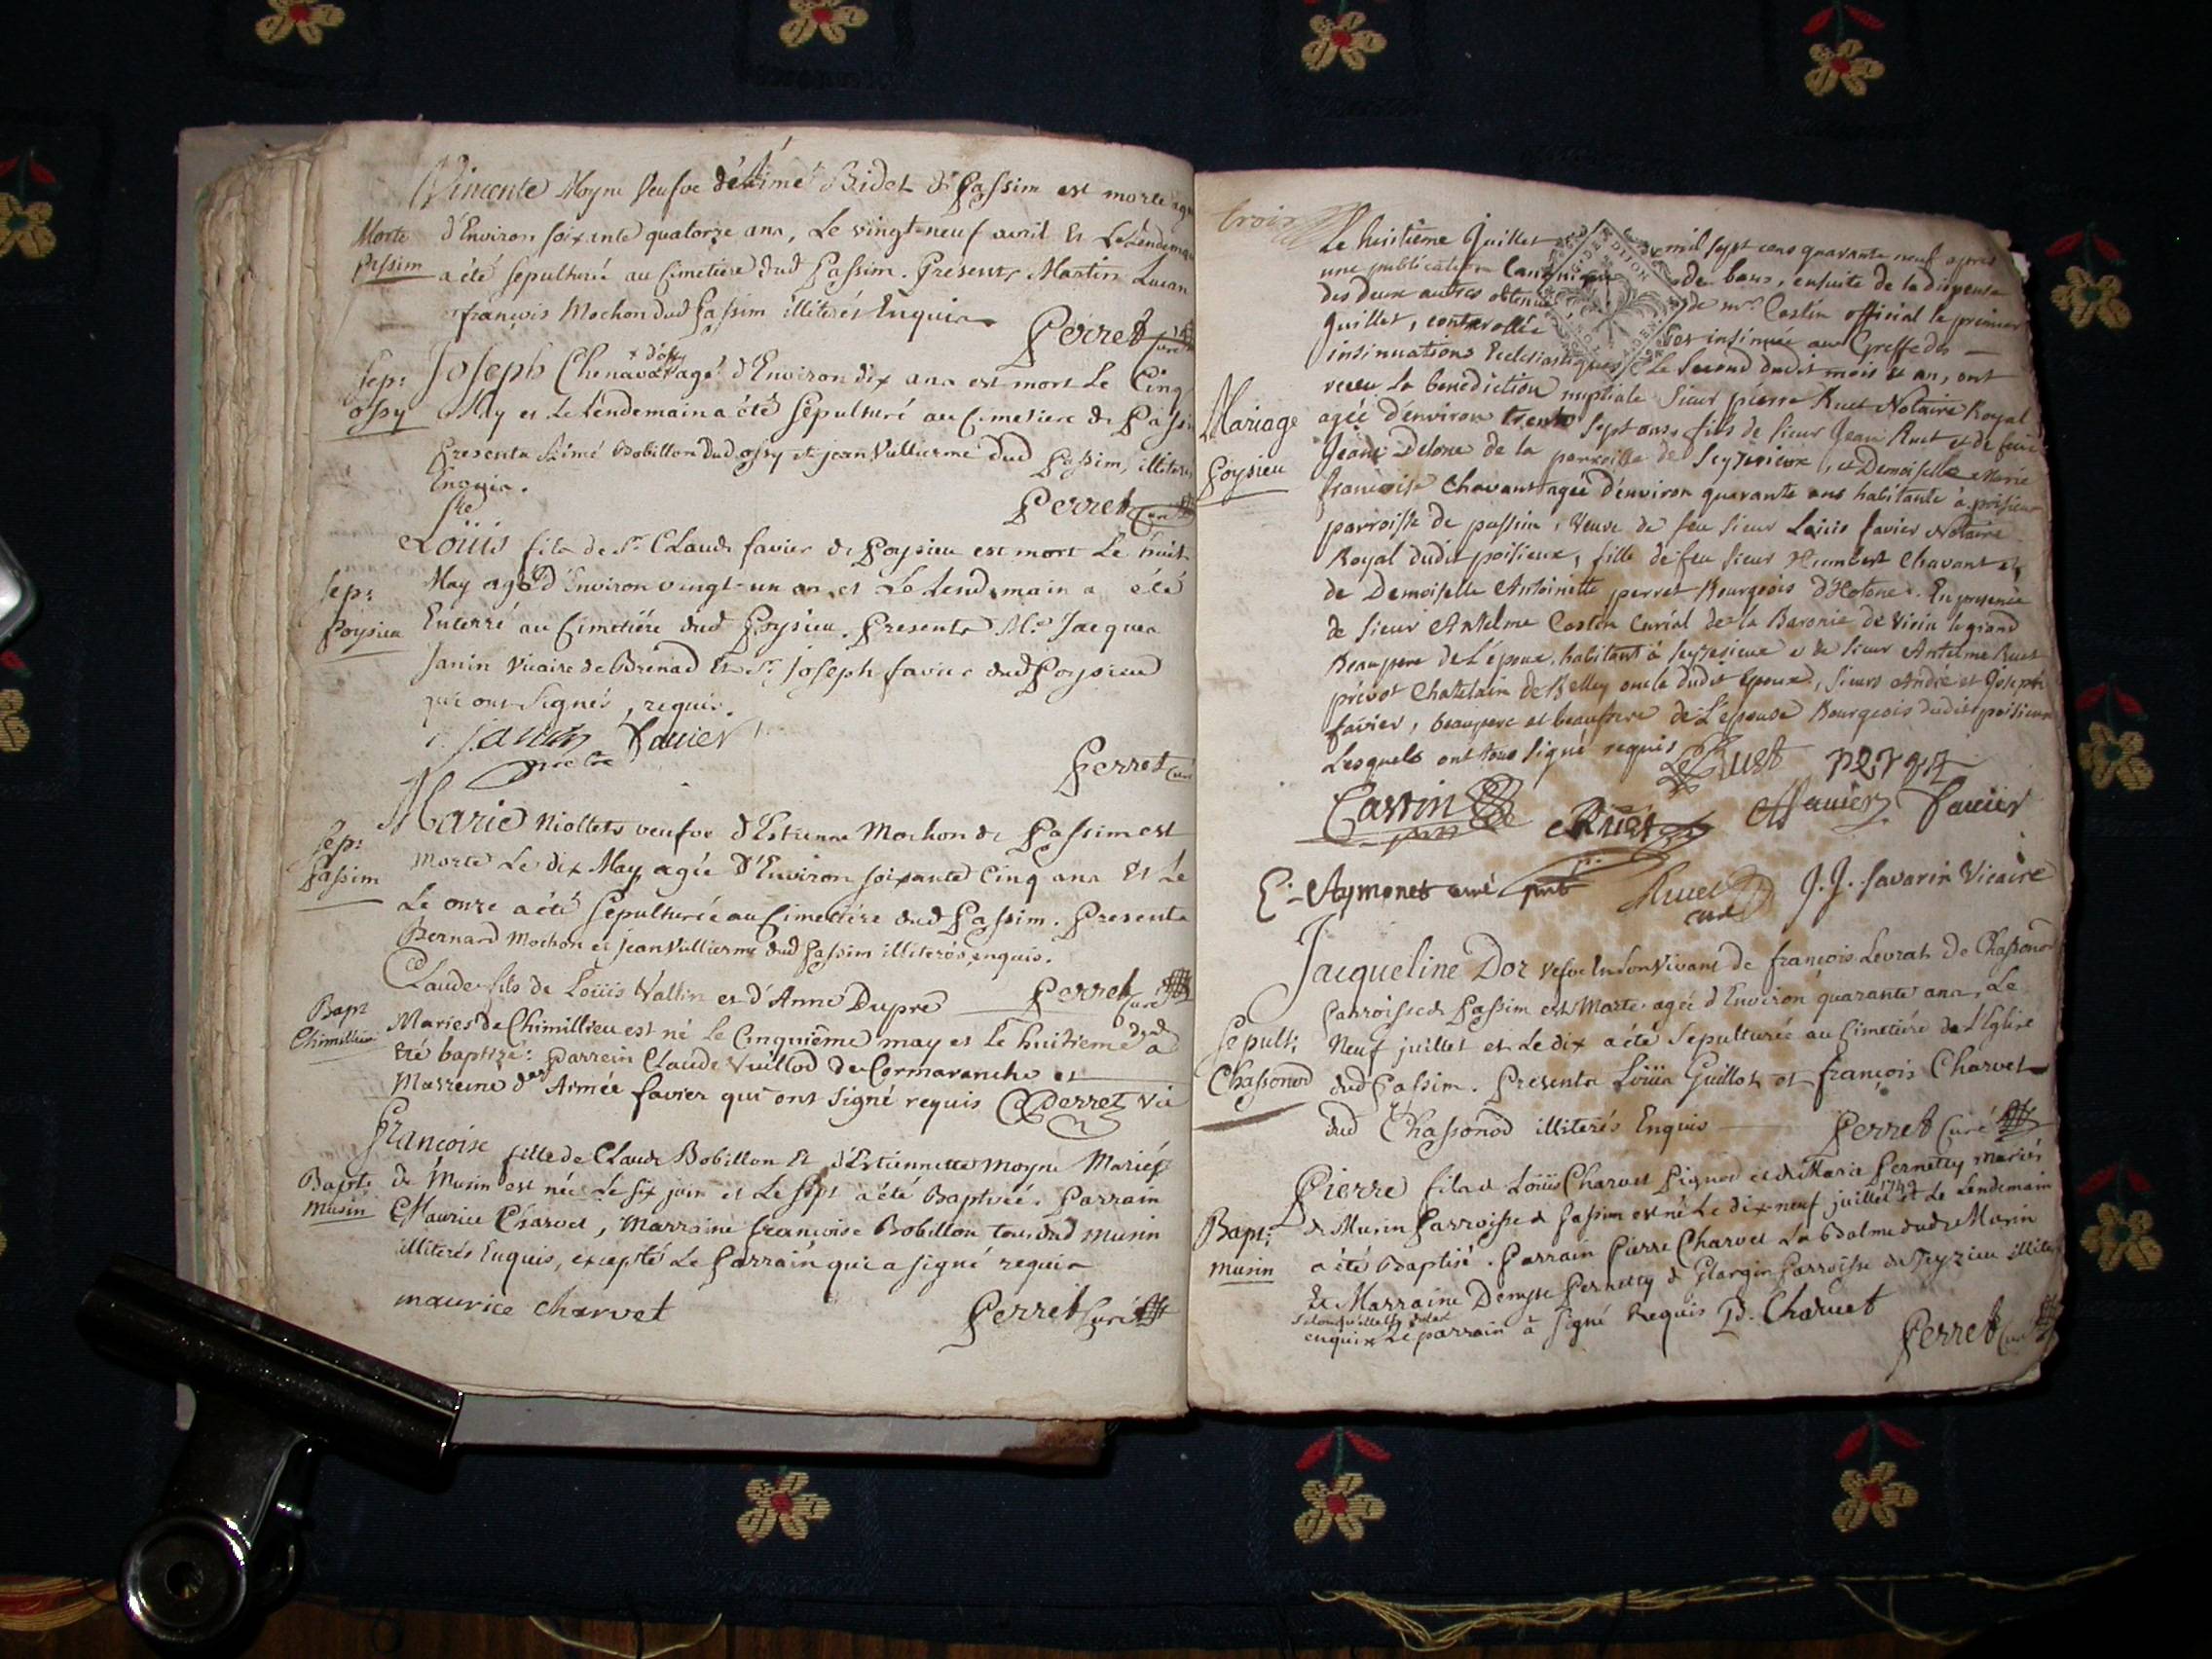 Vincente Moyne veufve d'Aimé Bidet de Passim est morte
Morte Passim
d'Environ soixante quatorze ans, Le vingt-neuf avril Et Le Lendemain
a été sepulturée au Cimetiere dud Passim. Presents Martin
françois Mochon dud Passim illiterés Enquis
Perret Curé
Sep: ossy
Joseph Chenavas d'ossy agé d'Environ dix ans est mort Le Cinq
May et Le Lendemain a été Sepulturé au Cimetiere de Passim
Presents Aimé Bobillon dud ossy et jean Vullierme dud Passim, illiterés
Enquis.
Perret Curé
Sep: Poysieu
Loüis fils de Sr. Claude favier de Poysieu est mort Le huit
May agé d'Environ vingt-un an, et Le Lendemain a été
Enterré au Cimetiére dud Poysieu. Presents Mre Jacques
Janin Vicaire de Brénad Et Sr. Joseph favier dud Poysieu
qui ont Signés, requis.
janin favier
pretre
Perret Curé
Sep: Passim
Marie Niollets veufve d'Estienne Mochon de Passim est
Morte Le dix May agée d'Environ soixante Cinq ans Et Le
Le onze a été Sepulturée au Cimetiére dud Passim. Presents
Bernard Mochon et jean Vullierme dud Passim illiterés, enquis.
Perret Curé
Bap: Chimillieu
Claude fils de Loüis Vallin et d'Anne Dupré
Mariés de Chimillieu est né Le Cinquiême may et le huitieme dud a
été baptizé: parrein Claude Vuillod de Cormaranche et
Marreine Aimée favier qui ont signé requis Perret Vic
Bapt: Musin
Françoise fille de Claude Bobillon Et d'Estiennette Moyne Mariés
de Musin est née Le six juin et Le sept a été Baptisée. Parrain
Maurice Charvet, Marraine françoise Bobillon tous dud Musin
illiterés Enquis, excepté Le Parrain qui a signé requis
maurice charvet
Perret Curé
trois
Le huitième Juillet mil sept cens quarante neuf apres
une publication Canonique de bans, ensuite de la dispense
des deux autres obtenue de mr. Costin official le premier
Juillet, controllée et insinuée au Greffe des
insinuations Ecclesiastiques Le Second dudit mois et an, ont
Mariage Poysieu
receu La benediction nuptiale Sieur pierre Ruet Notaire Royal
agée d'environ trente sept ans, fils de sieur Jean Ruet et de feue
Jeane Delone de la parroisse de Seyzerieux, et Demoiselle Marie
françoise Chavant agée d'environ quarante ans habitante à poisieux
parroisse de passim, Veuve de feu Sieur Loüis favier Notaire
Royal dudit poisieux, fille de feu Sieur Humbert Chavant et
de Demoiselle Antoinette perret Bourgeois d'Hotone. En presence
de Sieur Antelme Costin Curial de la Baronie de Virieu le grand
Beaupere de L'époux, habitant à Seyzerieux et de Sieur Antelme Ruet
prévot Chatelain de Belley oncle dudit Epoux, Sieurs André et Joseph
favier, beaupere et beaufrere de L'epouse Bourgeois dudit poisieux
Lesquels ont tous signé requis
Ruet perret
Castin Ruet favier favier
E. Aymonet curé Ruet curé J.J. Savarin Vicaire
Jacqueline Dor vefve En Son Vivant de françois Levrat de Chassonod
Parroisse de Passim est Morte agée d'Environ quarante ans, Le
Sepult: Chassonod
Neuf juillet et Le dix a été Sepulturée au Cimetiére de L'Eglise
dud Passim. Presents Loüis Guillot et françois Charvet
dud Chassonod illiterés Enquis
Perret Curé
Pierre fils de Loüis Charvet Pignod et de Marie Pernetty Mariés
Bapt: Musin
de Musin Parroisse de Passim est né Le dix-neuf juillet 1749 et Le Lendemain
a été Baptisé. Parrain Pierre Charvet La Balme dud Musin
Et Marraine Denyse Pernetty de Glargin Parroisse de Seyzieu
enquise Le parrain à Signé Requis P. Charvet
Perret Curé